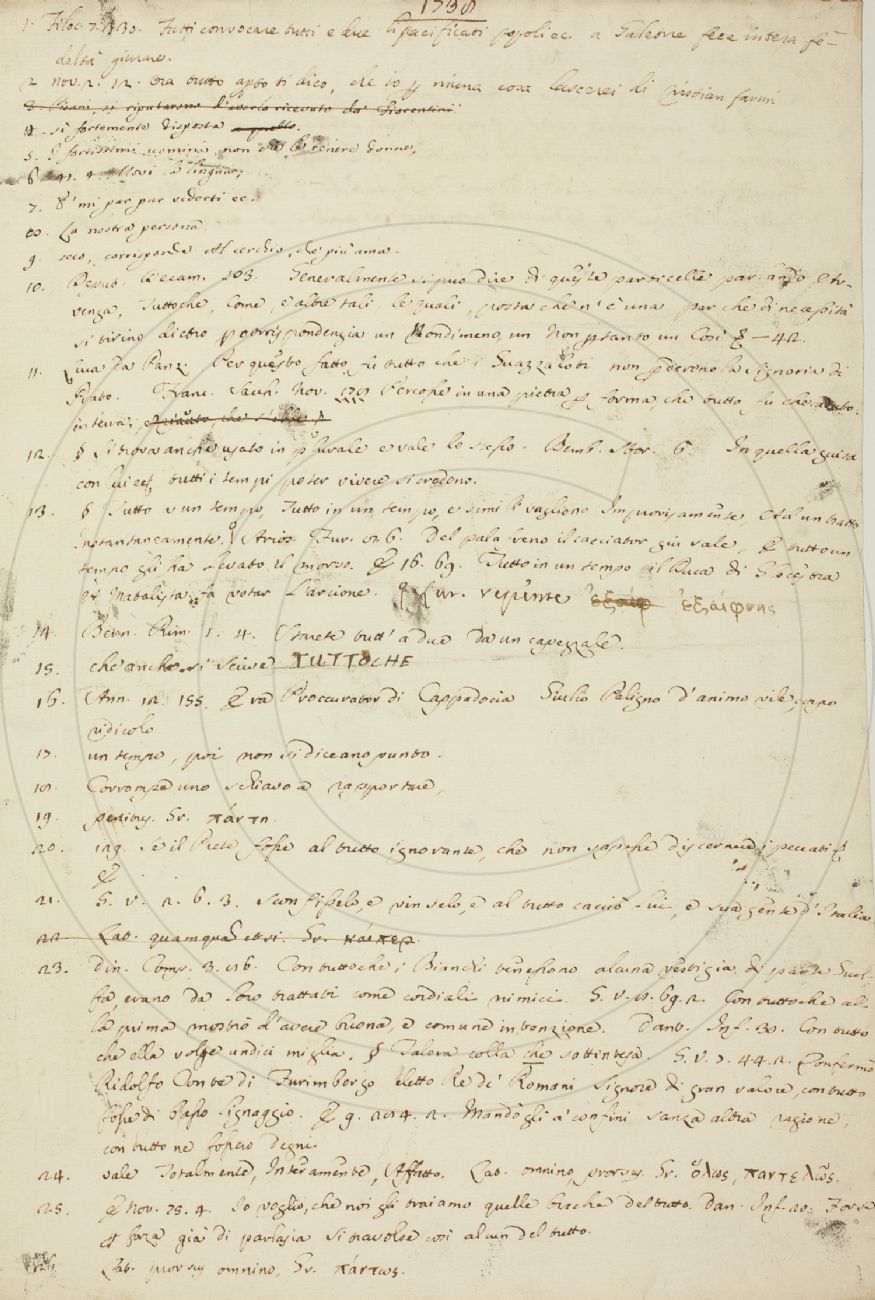 1738
1. Filoc. 7. 330. Tutti convocare tutti e due li pacificati popoli ec. a Galeone fece intera fe-
deltà giurare.
2 nov. 2. 12. era tutto apto ti dico, che io niuna cosa lascerei di Cristian farmi
3. Pisani, si riputarono d'averlo ricevuto da' Fiorentini
4. si fortemente disposta a quello.
5. I fortissimi uomini, non che le tenere donne,
6. 41. 4. Movi la lingua,
7. E' mi par pur vederti ec.
8. La nostra persona
9. seco, corrisponde al cerchio, che più ama.
10. Depub. Decam. 103. Generalmente si può dire di queste particelle parlando Av-
venga, Tuttochè, Come, e altre tali, le quali, posta che n' è una par che di necessità
si tirino dietro per corrispondenzia un Nondimeno, un Non pertanto un Così E - 42.
11. Luca da Panz. Per questo fatto fu tutto che i Guazzaloti non perderono la signoria di
Prato. Franc. Sacch. Nov. 179 Percosse in una pietra per forma, che tutto fu che
in terra,
12. § Si trova anche usato in plurale e vale lo stesso. Bemb. Stor. 6. In quella guisa
con lui tutti i tempi poter vivere si credono.
13. § Tutto a un tempo, Tutto in un tempo, e simili vagliono Improvisamente, Ad un tratto
Instantaneamente. Arios. Fur. 6. Del palafreno il cacciator giù sale, E tutto un
tempo gli ha levato il morso. E 16. 69. Tutto in un tempo il Duca di Glocestra
fa votar l'arcione. repente ἐξαίφ ἐξαίφνης
14. Bern. Rim. 1. 4. tutt' a due da un capezzale.
15. che anche si scrive TUTTOCHE
16. Ann. 12. 155. Era Proccurator di Cappadocia Giulio Peligno d'animo vile, corpo
ridicolo
17. un tempo, poi non si diceano punto.
18. Corrompe uno schiavo a rapportare,
19. penitus. Gr. πάντη.
20. 129. Se il Prete fosse al tutto ignorante, che non sapesse discernere i peccati
E
21. G. V. 2. 6. 3. sconfisselo, e vinselo, e al tutto cacciò lui, e sua gente d' Italia
22 Lat. quamquam etsi. Gr. καίπερ.
23. Din. Comp. 3. 86. Contuttochè i Bianchi tenessono alcuna vestigia di parte Guel-
fa, erano da loro trattati come cordiali nimici. G. V. 8. 69. 2. Contuttochè al-
la prima mostrò d'avere buona, e comune intenzione. Dant. Inf. 30. Con tutto
ch' ella volge undici miglia. § Talora colla che sottintesa. G. V. 7. 44. 2. Confermò
Ridolfo Conte di Furimborgo eletto Re de' Romani Signore di gran valore, contutto
fosse di basso lignaggio. E 9. 204. 2. Mandògli a' confini sanza altra ragione,
contutto ne fossero degni.
24. vale Totalmente, Interamente, Affatto. Lat. omnino, prorsus. Gr. ὅλως, παντελῶς.
25. E nov. 75. 4. Io voglio, che noi gli traiamo quelle brache del tutto. Dan. Inf. 20. Forse
per forza già di parlasia Si travolse così alcun del tutto.
26 Lat. prorsus omnino, Gr. πάντως.